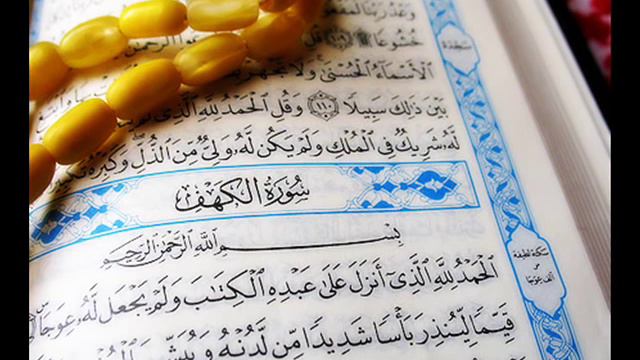 خُشُوعًا ۩ ﴿١٠٩﴾ قُلِ
سجدة
الْأَسْمَاءُ الْحُسْنَىٰ وَلَا تَجْهَرْ
بَيْنَ ذَٰلِكَ سَبِيلًا ﴿١١٠﴾ وَقُلِ الْحَمْدُ لِلَّهِ الَّذِي
لَهُ شَرِيكٌ فِي الْمُلْكِ وَلَمْ يَكُن لَّهُ وَلِيٌّ مِّنَ الذُّلِّ وَكَبِّرْهُ تَكْبِيرًا
سُورَةُ الْكَهْفِ
بِسْمِ اللَّهِ الرَّحْمَٰنِ الرَّحِيمِ
الْحَمْدُ لِلَّهِ الَّذِي أَنزَلَ عَلَىٰ عَبْدِهِ الْكِتَابَ وَلَمْ يَجْعَل لَّهُ عِوَجًا
سكتة لطيفة
على
ألف عوجا
قَيِّمًا لِّيُنذِرَ بَأْسًا شَدِيدًا مِّن لَّدُنْهُ وَيُبَشِّرَ